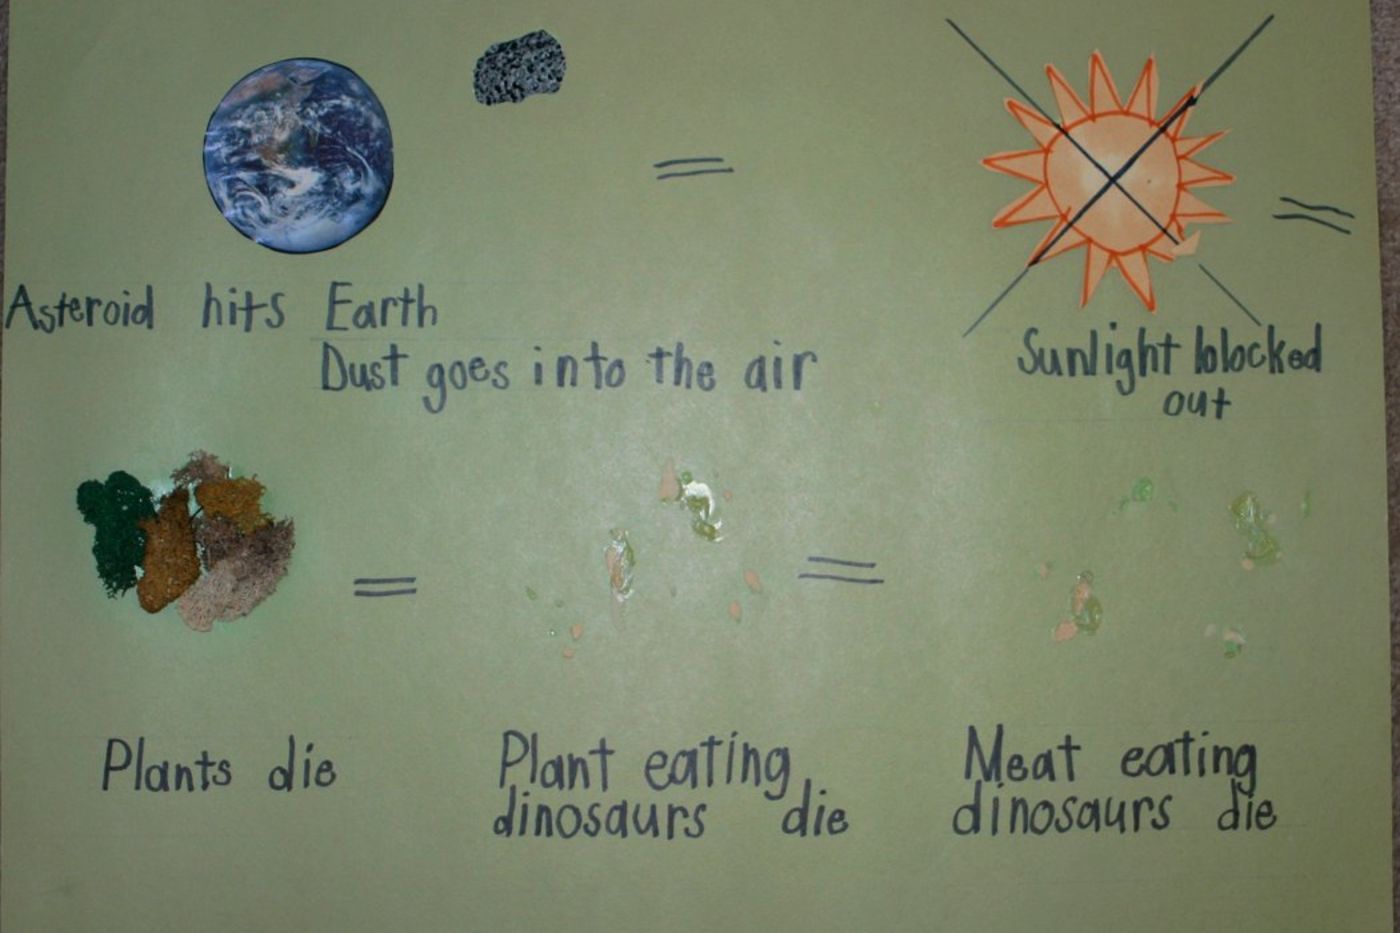 =
=
Asteroid hits Earth
Dust goes into the air
Sunlight blocked
out
=
=
Plants die
Plant eating
dinosaurs die
Meat eating
dinosaurs die